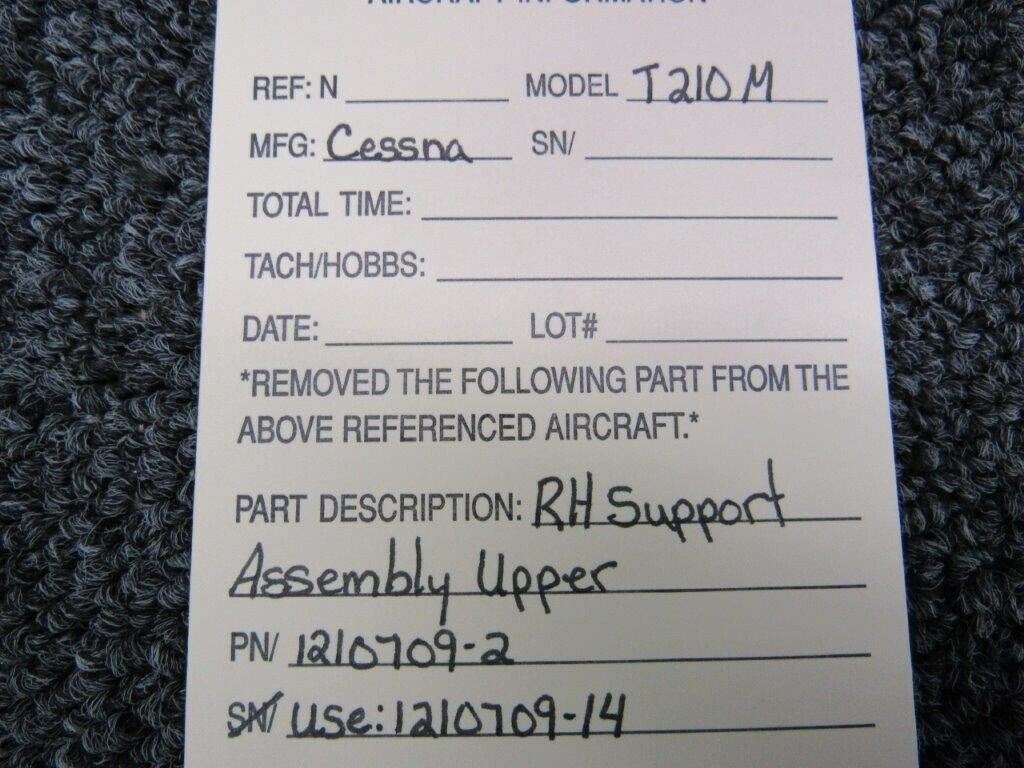 AIRCRAFT INFORMATION
REF: N MODEL T210M
MFG: Cessna SN/
TOTAL TIME:
TACH/HOBBS:
DATE: LOT#
*REMOVED THE FOLLOWING PART FROM THE
ABOVE REFERENCED AIRCRAFT.*
PART DESCRIPTION: RH Support
Assembly Upper
PN/ 1210709-2
SN/ use: 1210709-14